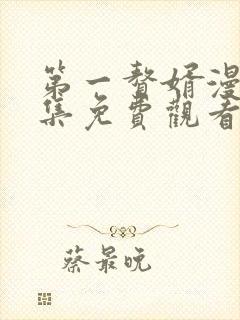 第一贅婿漫
集免費觀看
蔡最晚